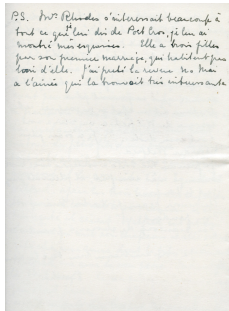 P.S. Mrs Rhodes s'intéressait beaucoup à
tout ce que je lui dis de Port Cros, je lui ai
montré mes esquisses. Elle a trois filles
par son premier marriage, qui habitent près
d'elle. J'ai prêté la revue no Mai
a l'ainée qui la trouvait très intéressante